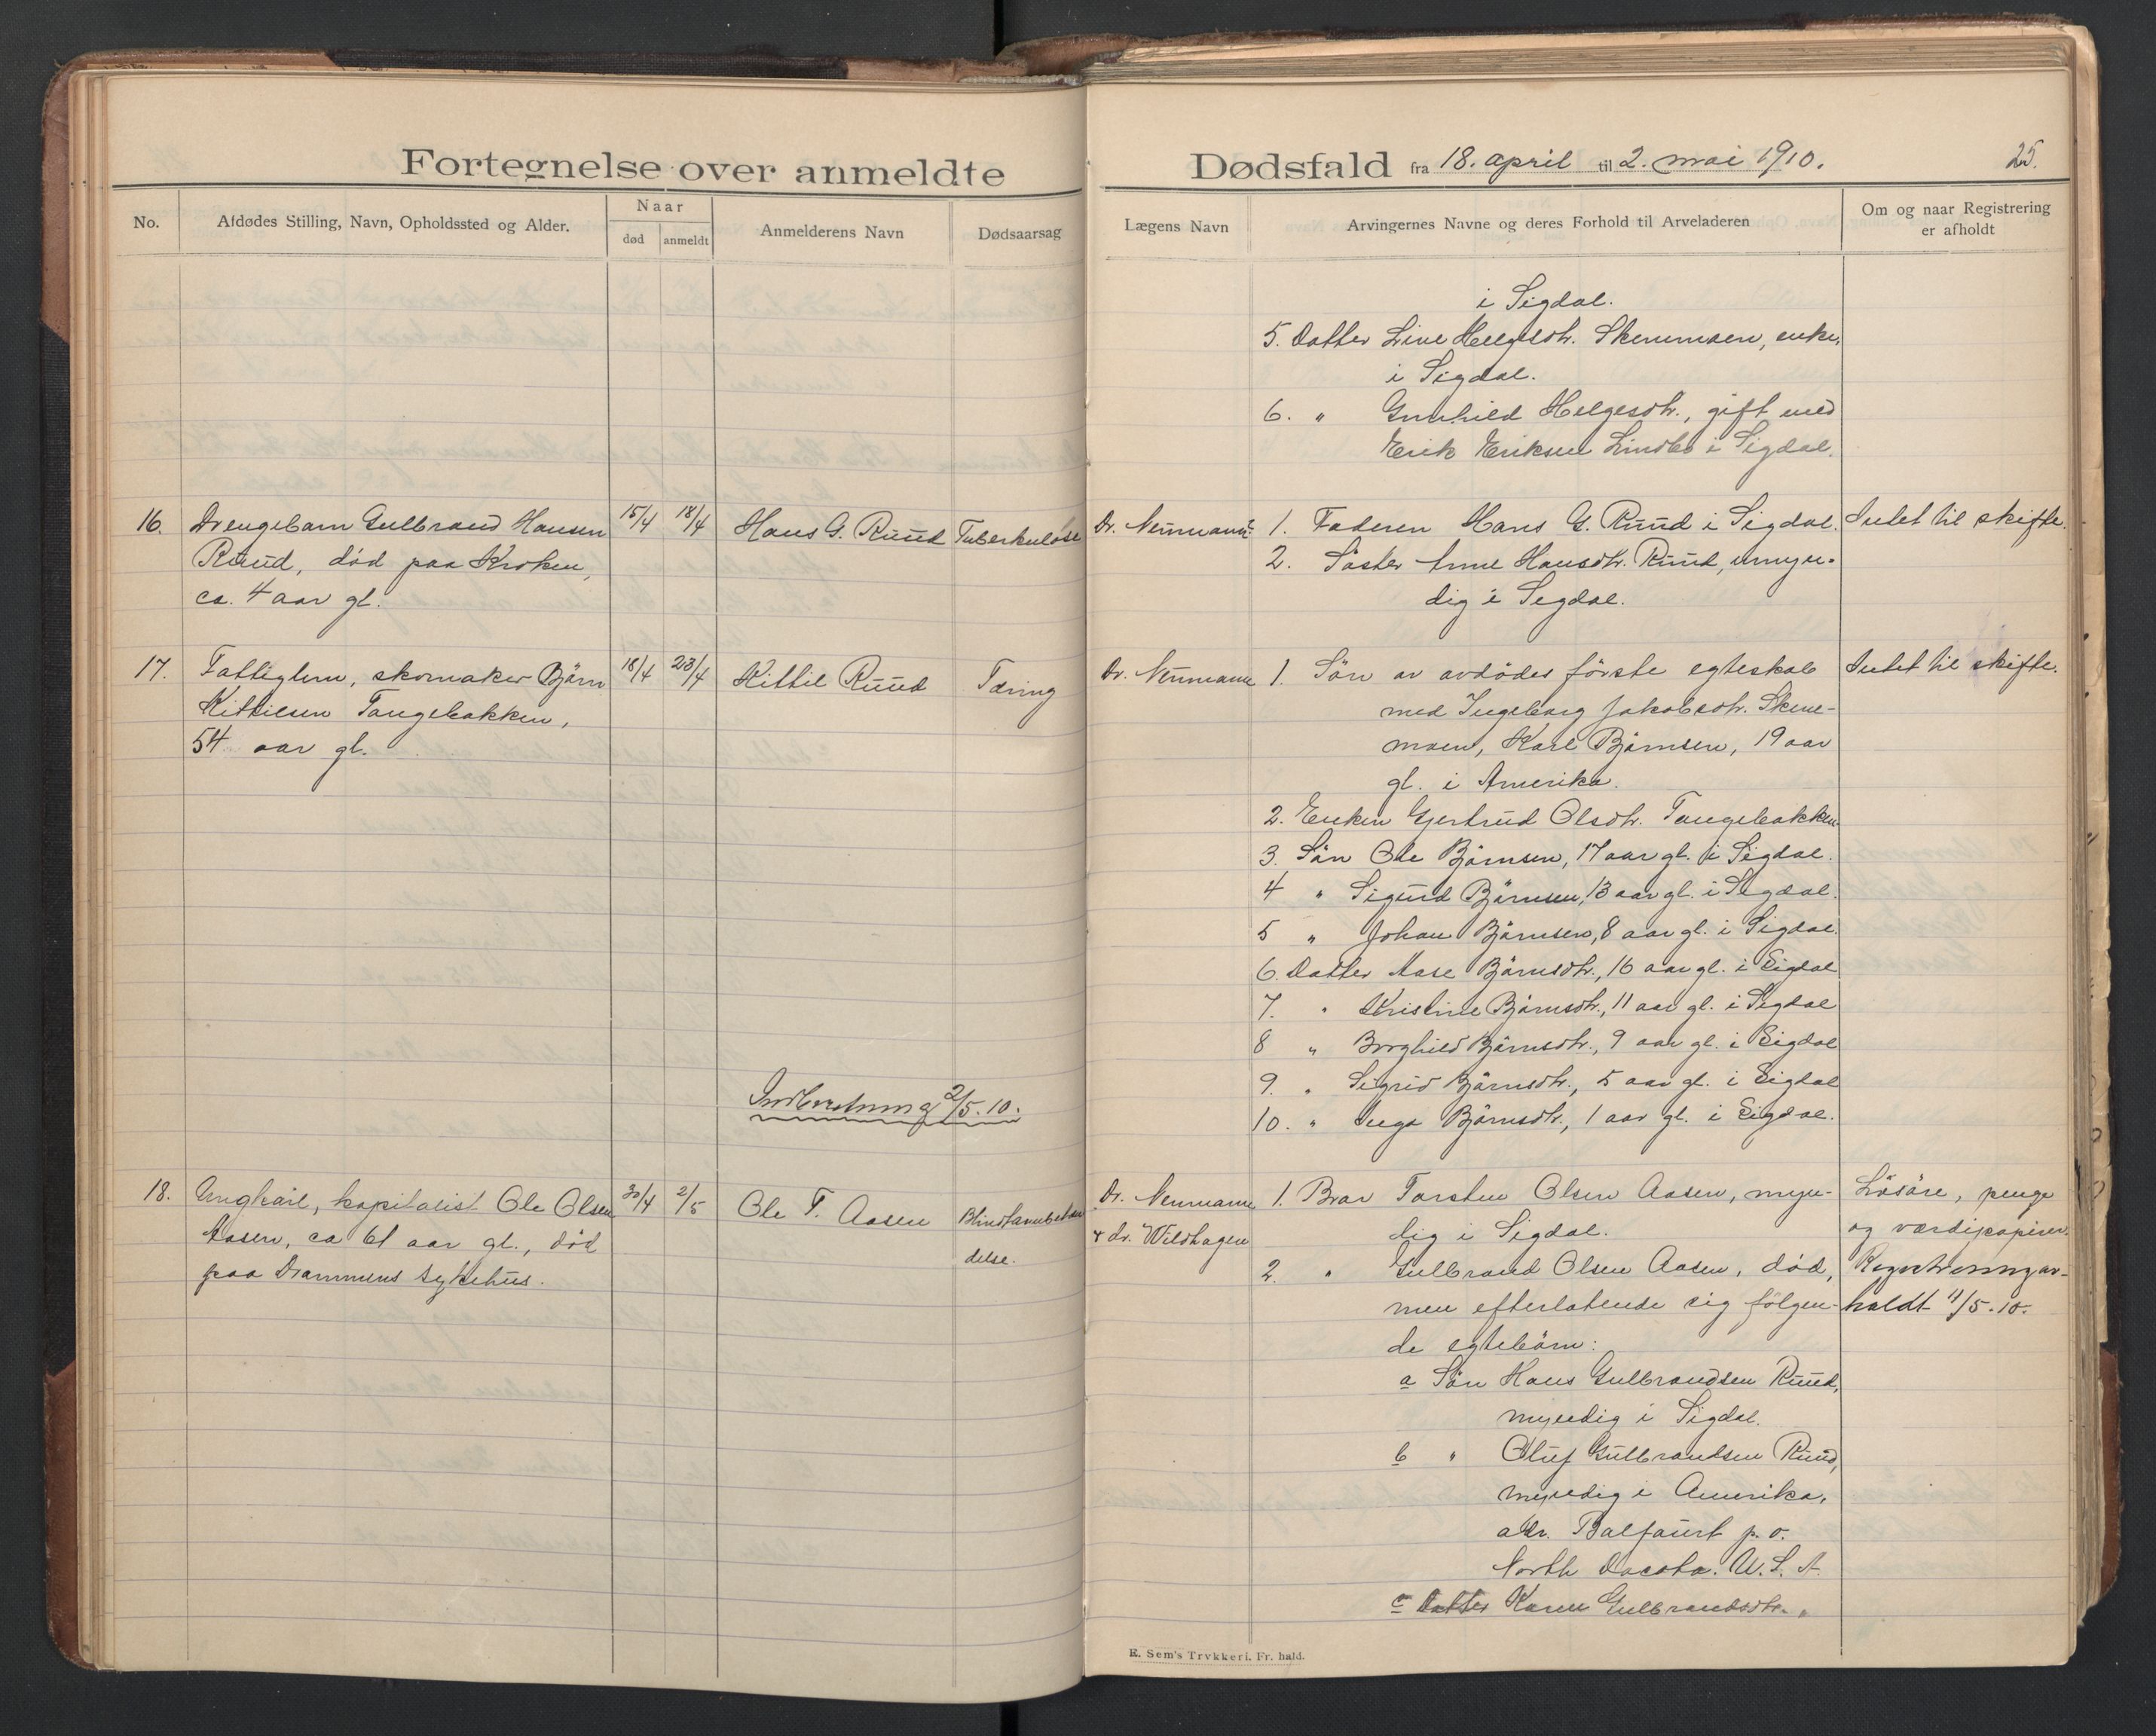 Fortegnelse over anmeldte
Dødsfald fra 18. april til 2. mai 1910.
25.
No.
Afdødes Stilling, Navn, Opholdssted og Alder.
Naar
død
anmeldt
Anmelderens Navn
Dødsaarsag
Lægens Navn
Arvingernes Navne og deres Forhold til Arveladeren
Om og naar Registrering
er afholdt
i Sigdal.
5. Datter Live Helgesdtr. Skrenmoen, enke,
i Sigdal.
6. " Gunhild Helgesdtr., gift med
Erik Eriksen i Sigdal.
16. Drengebarn Gulbrand Hansen
Ruud, død paa Kroken,
ca. 4 aar gl.
15/4 18/4
Hans G. Ruud
Tuberkuløse
Dr. Neumann
1. Faderen Hans G. Ruud i Sigdal.
2. Søster Anne Hansdtr. Ruud, umyn-
dig i Sigdal.
Intet til skifte.
17. Fattiglem, skomaker Bjørn
Kittilsen Tangebakken,
54 aar gl.
18/4 23/4
Kittil Ruud
Tæring
Dr. Neumann
1. Søn av avdødes første egteskab
med Ingeborg Jakobsdtr. Skrene-
moen, Karl Bjørnsen, 19 aar
gl. i Amerika.
2. Enken Gjertrud Olsdtr. Tangebakken
3. Søn Ole Bjørnsen, 17 aar gl. i Sigdal.
4 " Sigurd Bjørnsen, 13 aar gl. i Sigdal.
5 " Johan Bjørnsen, 8 aar gl. i Sigdal.
6. Datter Aase Bjørnsdtr., 16 aar gl. i Sigdal
7. " Kristine Bjørnsdtr., 11 aar gl. i Sigdal
8 " Borghild Bjørnsdtr., 9 aar gl. i Sigdal
9. " Sigrid Bjørnsdtr., 5 aar gl. i Sigdal
10. " Inga Bjørnsdtr., 1 aar gl. i Sigdal.
Intet til skifte.
Indberetning 2/5.10.
18. Ungkarl, kapitalist Ole Olsen
Aasen, ca 61 aar gl., død
paa Drammens sykehus.
30/4 2/5
Ole T. Aasen
Blindtarmbetæn
delse.
Dr. Neumann
& dr. Wildhagen
1. Bror Torsten Olsen Aasen, myn-
dig i Sigdal.
2. " Gulbrand Olsen Aasen, død,
men efterlatende sig følgen-
de egtebørn:
a Søn Hans Gulbrandsen Ruud,
myndig i Sigdal.
b " Oluf Gulbrandsen Ruud,
myndig i Amerika,
adr. Balfourt p. o.
North Dacota. U. S. A.
c Datter Karen Gulbrandsdtr. "
Løsøre, penge
og værdipapirer.
Registrering av-
holdt 11/5.10.
E. Sem's Trykkeri, Fr. hald.